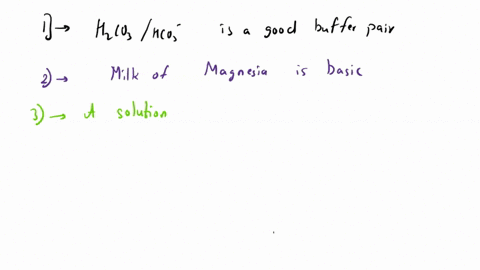 1) → H₂CO₃ / HCO₃⁻ is a good buffer pair
2) → Milk of Magnesia is basic
3) → A solution